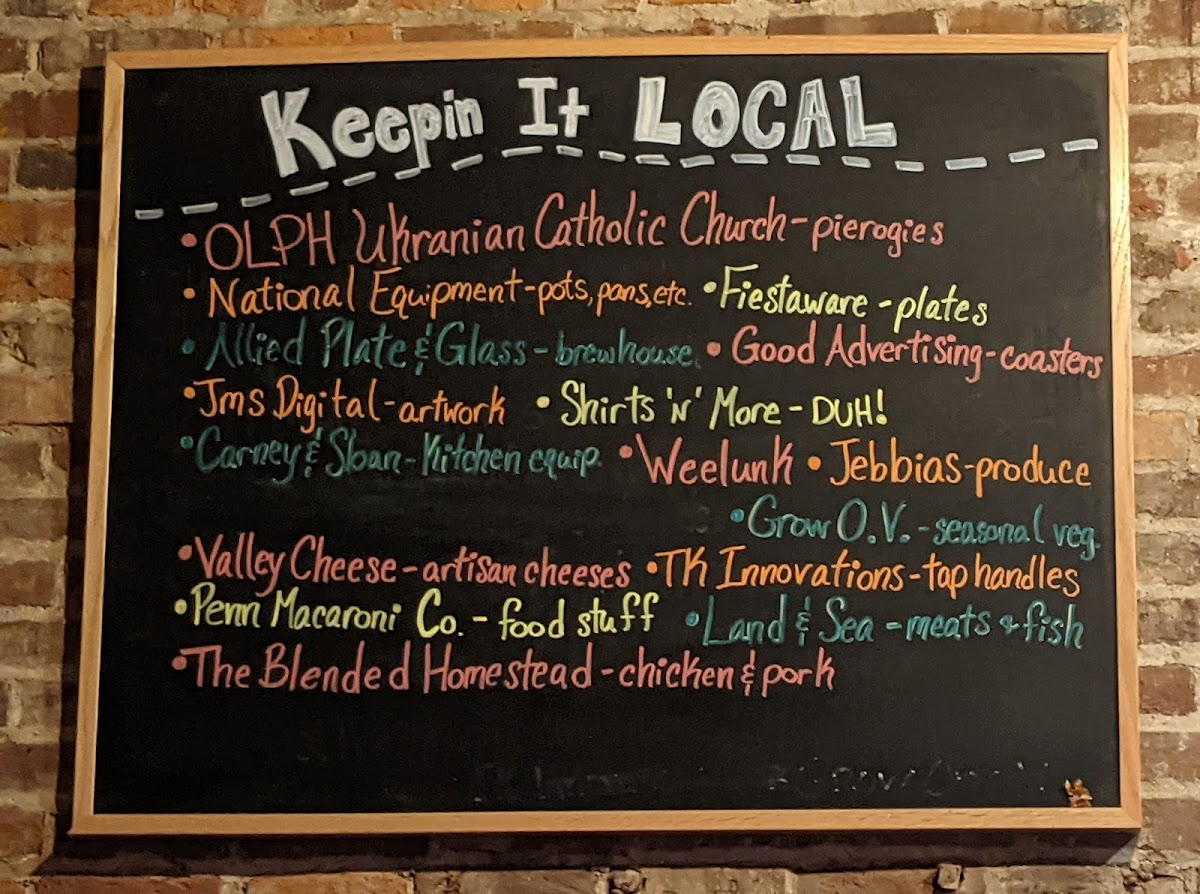 Keepin It LOCAL
• OLPH Ukranian Catholic Church - pierogies
• National Equipment - pots, pans, etc. • Fiestaware - plates
• Allied Plate & Glass - brewhouse. • Good Advertising - coasters
• Jms Digital - artwork • Shirts 'N' More - DUH!
• Carney & Sloan - Kitchen equip. • Weelunk • Jebbias - produce
• Grow O.V. - seasonal veg.
• Valley Cheese - artisan cheeses • TK Innovations - tap handles
• Penn Macaroni Co. - food stuff • Land & Sea - meats & fish
• The Blended Homestead - chicken & pork